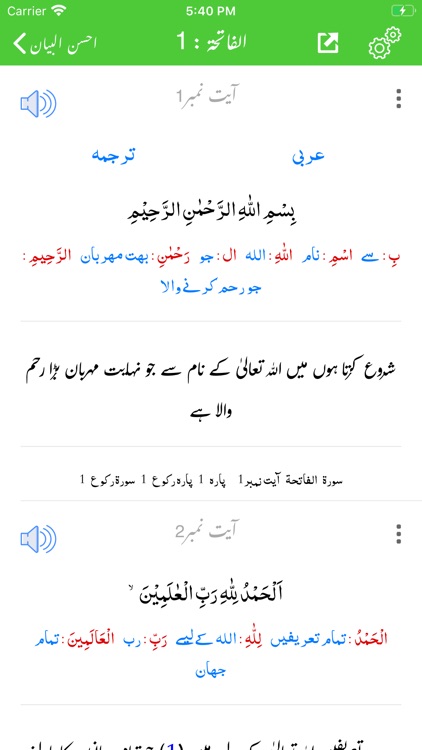 Carrier 5:40 PM
احسن البیان الفاتحة : 1
آیت نمبر1
عربی ترجمہ
بِسْمِ اللّٰهِ الرَّحْمٰنِ الرَّحِیْمِ
بِ: سے اسْمِ: نام اللّٰهِ: الله ال: جو رَحْمٰنِ: بهت مهربان الرَّحِیمِ:
جو رحم کرنے والا
شروع کرتا ہوں میں اللہ تعالیٰ کے نام سے جو نہایت مہربان بڑا رحم
والا ہے
سورة الفاتحة آیت نمبر1 پاره 1 پاره رکوع 1 سورة رکوع 1
آیت نمبر2
اَلْحَمْدُ لِلّٰهِ رَبِّ الْعٰلَمِیْنَ ۙ
الْحَمْدُ: تمام تعریفیں لِلّٰهِ: الله کے لیے رَبِّ: رب الْعَالَمِینَ: تمام
جهان